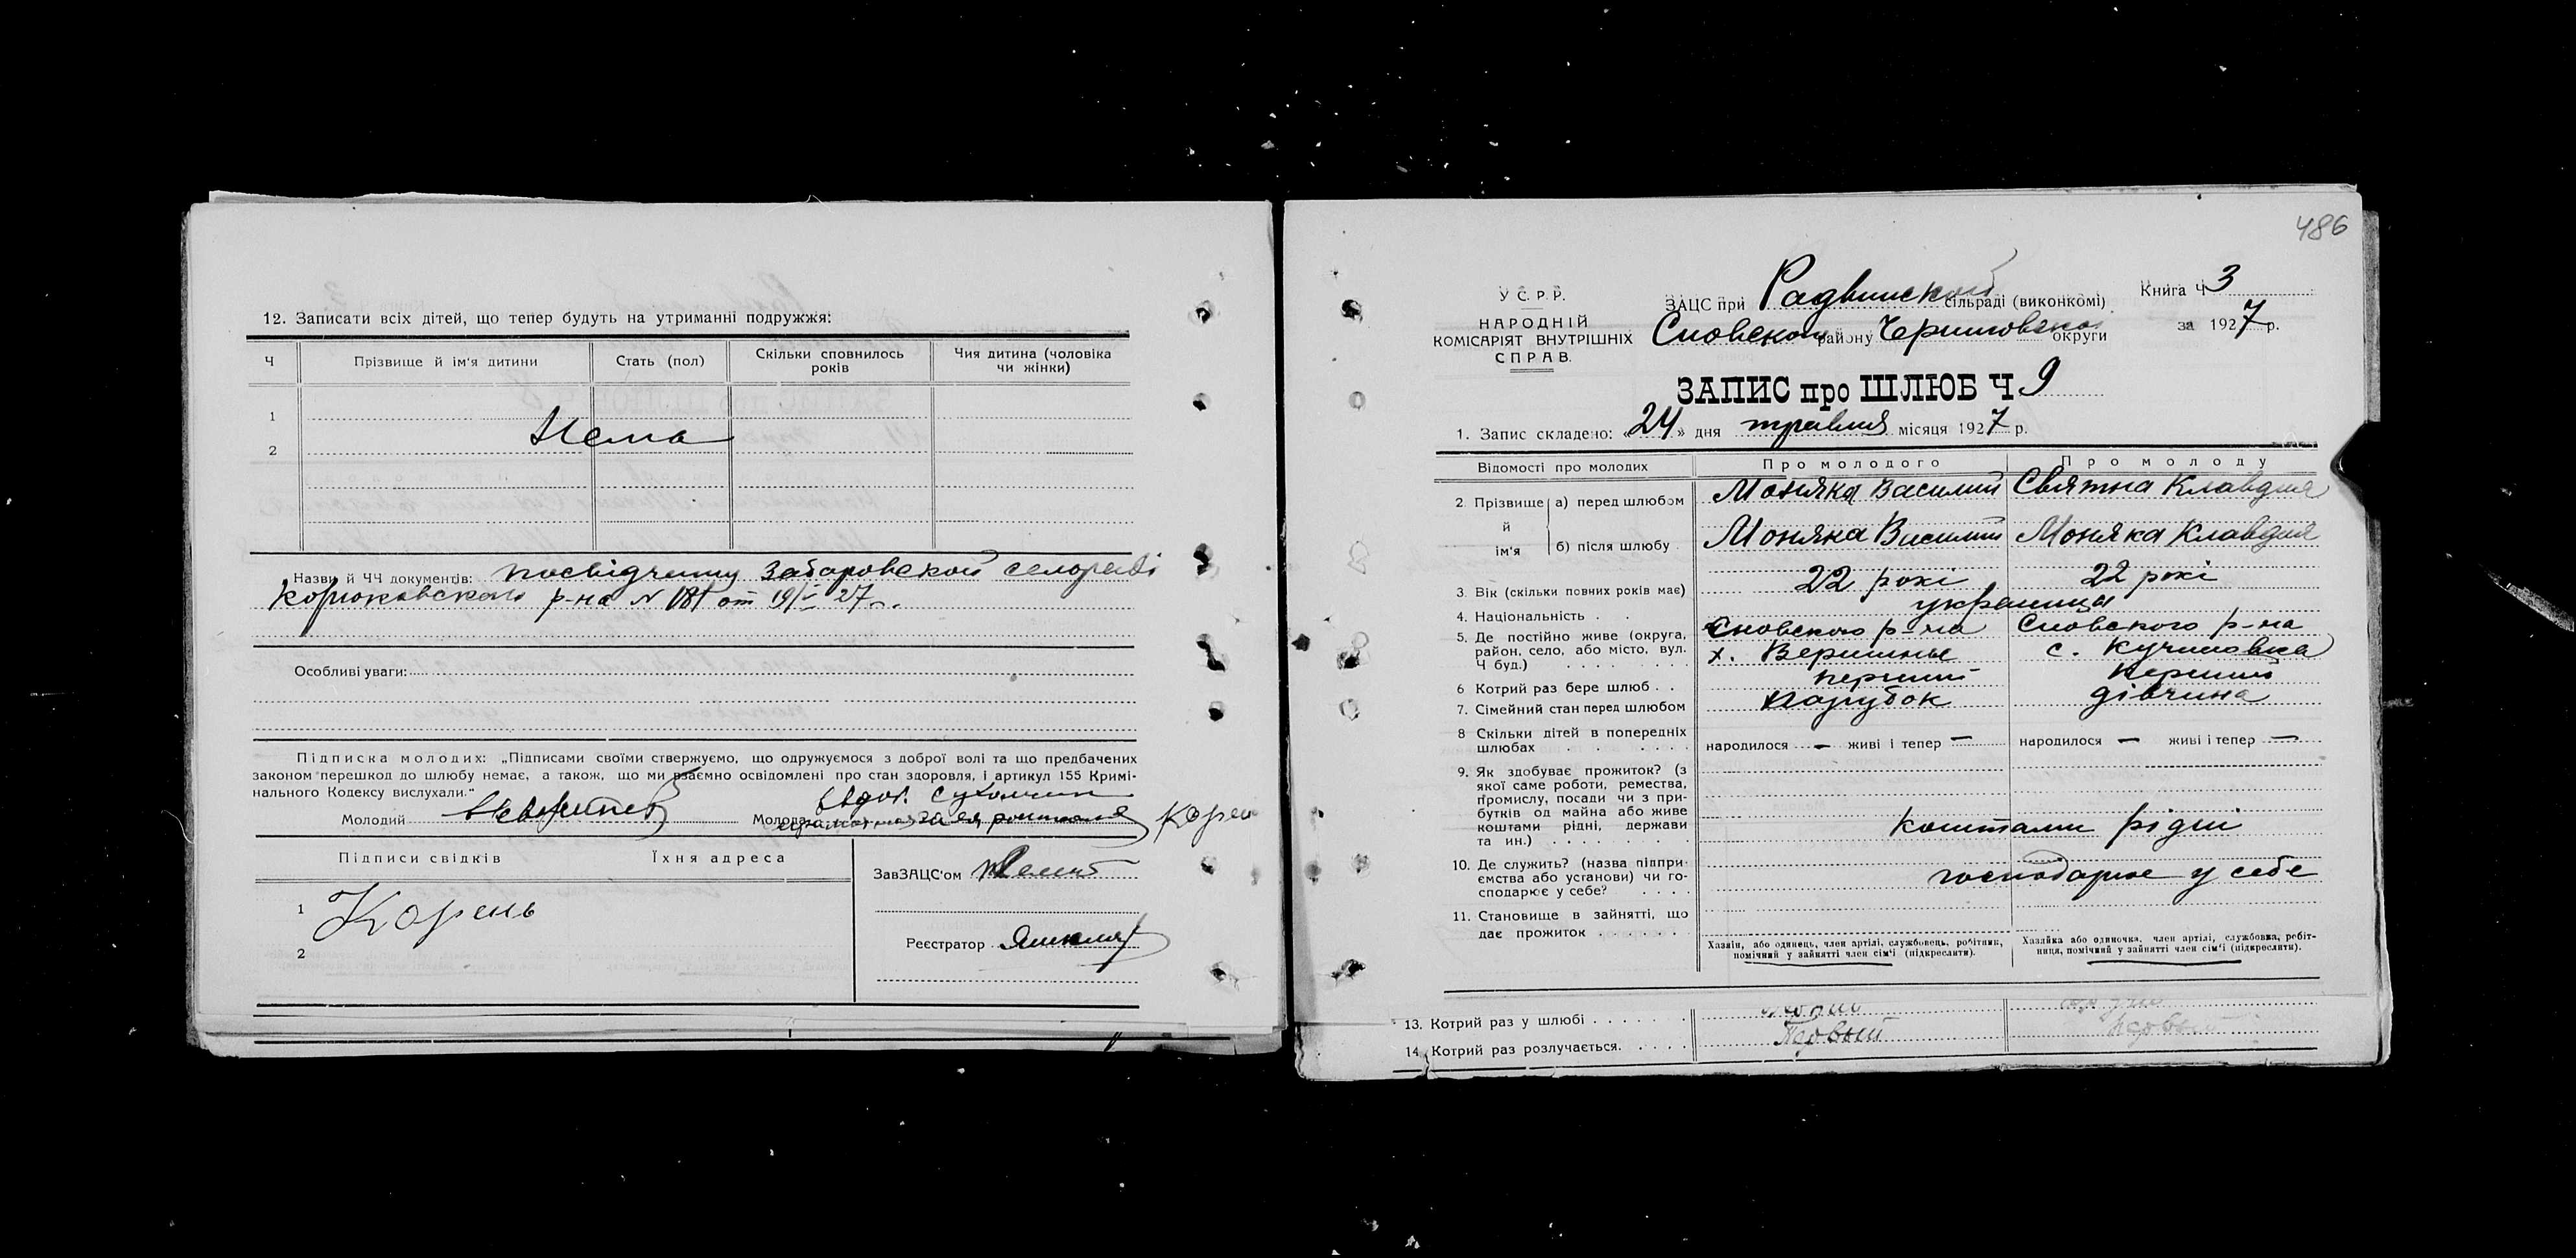 12. Записати всіх дітей, що тепер будуть на утриманні подружжя:
Ч Прізвище й ім'я дитини Стать (пол) Скільки сповнилось років Чия дитина (чоловіка чи жінки)
1
Нема
2
Назви й ЧЧ документів: посвідчену Забаровской селораді
Корюковского р-на N 181 от 19/V 27 г.
Особливі уваги:
Підписка молодих: „Підписами своїми стверджуємо, що одружуємося з доброї волі та що предбачених
законом перешкод до шлюбу немає, а також, що ми взаємно освідомлені про стан здоровля, і артикул 155 Кримі-
нального Кодексу вислухали."
Молодий Молода
Підписи свідків Їхня адреса
ЗавЗАЦС'ом
1 Корень
Реєстратор
2
486
У С. Р. Р.
НАРОДНІЙ
КОМІСАРІЯТ ВНУТРІШНІХ
СПРАВ.
ЗАЦС при Радвинской сільраді (виконкомі)
Сновского району Черниговско округи
Книга Ч 3
за 1927 р.
ЗАПИС про ШЛЮБ Ч 9
1. Запис складено: «24» дня травня місяця 1927 р.
Відомості про молодих Про молодого Про молоду
2. Прізвище й ім'я а) перед шлюбом Моняка Василий Святна Клавдия
б) після шлюбу Моняка Василий Моняка Клавдия
3. Вік (скільки повних років має) 22 рокі 22 рокі
4. Національність украинци
5. Де постійно живе (округа, район, село, або місто, вул. Ч буд.) Сновского р-на х. Вершины Сновского р-на с. Кучиновка
6 Котрий раз бере шлюб перший перший
7. Сімейний стан перед шлюбом парубок дівчина
8 Скільки дітей в попередніх шлюбах народилося — живі і тепер — народилося — живі і тепер —
9. Як здобуває прожиток? (з якої саме роботи, ремества, промислу, посади чи з прибутків од майна або живе коштами рідні, держави та ин.) коштами рідні
10. Де служить? (назва підприємства або установи) чи господарює у себе? господарює у себе
11. Становище в зайнятті, що дає прожиток
Хазяїн, або одинець, член артілі, службовець, робітник, помічний у зайнятті член сім'ї (підкреслити).
Хазяйка або одиночка, член артілі, службовка, робітниця, помічний у зайнятті член сім'ї (підкреслити).
13. Котрий раз у шлюбі
14. Котрий раз розлучається. Первый Первый